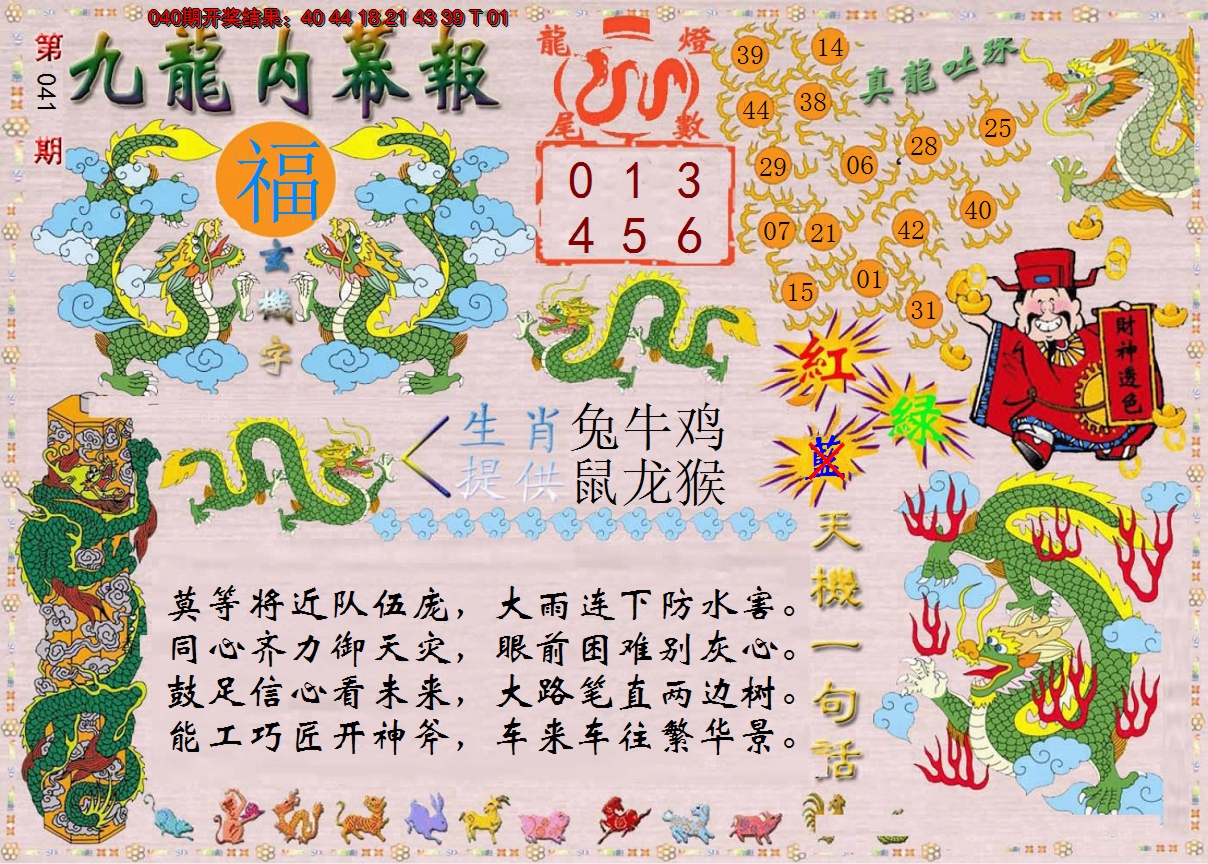 040期开奖结果：40 44 18 21 43 39 T 01
第041期
九龍内幕報
福
玄機字
龍燈
尾數
0 1 3
4 5 6
真龍吐珠
39 14
44 38
29 06 28 25
07 21 42 40
15 01 31
財神透色
紅
綠
藍
生肖 兔牛鸡
提供 鼠龙猴
天機一句話
莫等将近队伍庞，大雨连下防水害。
同心齐力御天灾，眼前困难别灰心。
鼓足信心看未来，大路笔直两边树。
能工巧匠开神斧，车来车往繁华景。